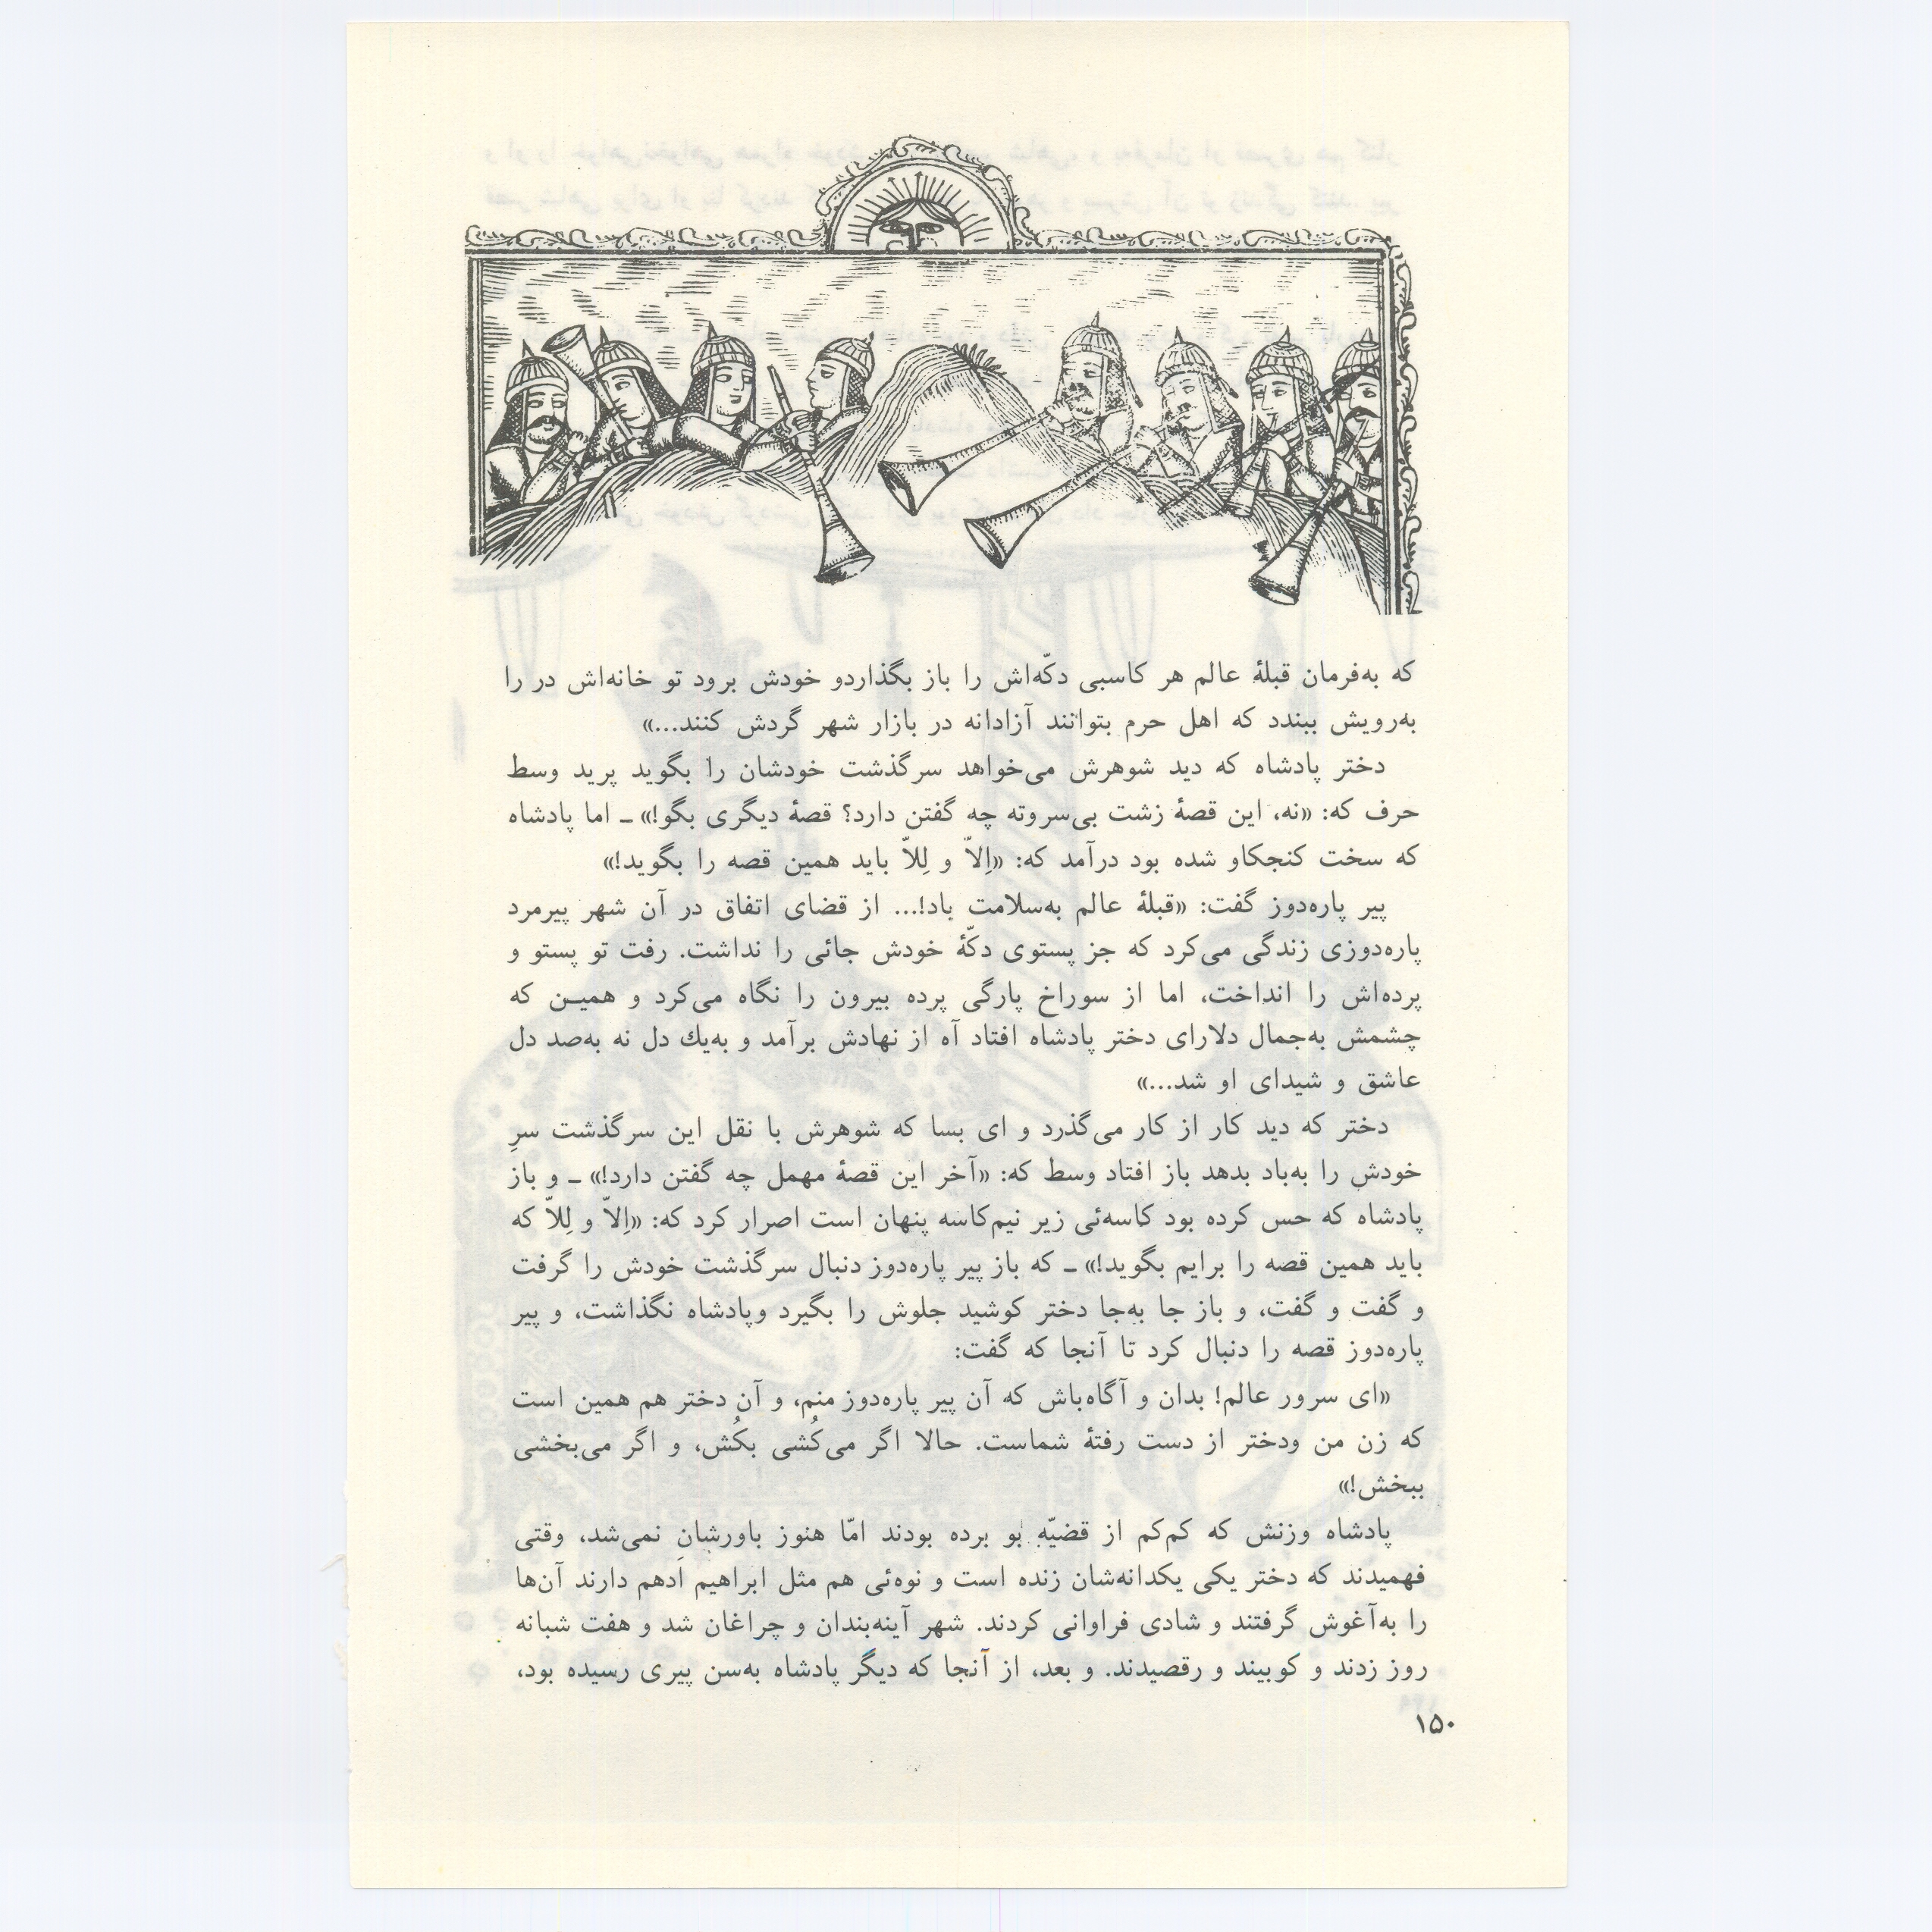 که به‌فرمان قبلهٔ عالم هر کاسبی دکّه‌اش را باز بگذاردو خودش برود تو خانه‌اش در را
به‌رویش ببندد که اهل حرم بتوانند آزادانه در بازار شهر گردش کنند...»
دختر پادشاه که دید شوهرش می‌خواهد سرگذشت خودشان را بگوید پرید وسط
حرف که: «نه، این قصهٔ زشت بی‌سروته چه گفتن دارد؟ قصهٔ دیگری بگو!» ـ اما پادشاه
که سخت کنجکاو شده بود درآمد که: «اِلاّ و لِلاّ باید همین قصه را بگوید!»
پیر پاره‌دوز گفت: «قبلهٔ عالم به‌سلامت باد!... از قضای اتفاق در آن شهر پیرمرد
پاره‌دوزی زندگی می‌کرد که جز پستوی دکّهٔ خودش جائی را نداشت. رفت تو پستو و
پرده‌اش را انداخت، اما از سوراخ پارگی پرده بیرون را نگاه می‌کرد و همین که
چشمش به‌جمال دلارای دختر پادشاه افتاد آه از نهادش برآمد و به‌یك دل نه به‌صد دل
عاشق و شیدای او شد...»
دختر که دید کار از کار می‌گذرد و ای بسا که شوهرش با نقل این سرگذشت سرِ
خودش را به‌باد بدهد باز افتاد وسط که: «آخر این قصهٔ مهمل چه گفتن دارد!» ـ و باز
پادشاه که حس کرده بود کاسه‌ئی زیر نیم‌کاسه پنهان است اصرار کرد که: «اِلاّ و لِلاّ که
باید همین قصه را برایم بگوید!» ـ که باز پیر پاره‌دوز دنبال سرگذشت خودش را گرفت
و گفت و گفت، و باز جا به‌جا دختر کوشید جلوش را بگیرد وپادشاه نگذاشت، و پیر
پاره‌دوز قصه را دنبال کرد تا آنجا که گفت:
«ای سرور عالم! بدان و آگاه‌باش که آن پیر پاره‌دوز منم، و آن دختر هم همین است
که زن من ودختر از دست رفتهٔ شماست. حالا اگر می‌کُشی بکُش، و اگر می‌بخشی
ببخش!»
پادشاه وزنش که کم‌کم از قضیّه بو برده بودند امّا هنوز باورشان نمی‌شد، وقتی
فهمیدند که دختر یکی یکدانه‌شان زنده است و نوه‌ئی هم مثل ابراهیم اَدهم دارند آن‌ها
را به‌آغوش گرفتند و شادی فراوانی کردند. شهر آینه‌بندان و چراغان شد و هفت شبانه
روز زدند و کوبیند و رقصیدند. و بعد، از آنجا که دیگر پادشاه به‌سن پیری رسیده بود،
۱۵۰